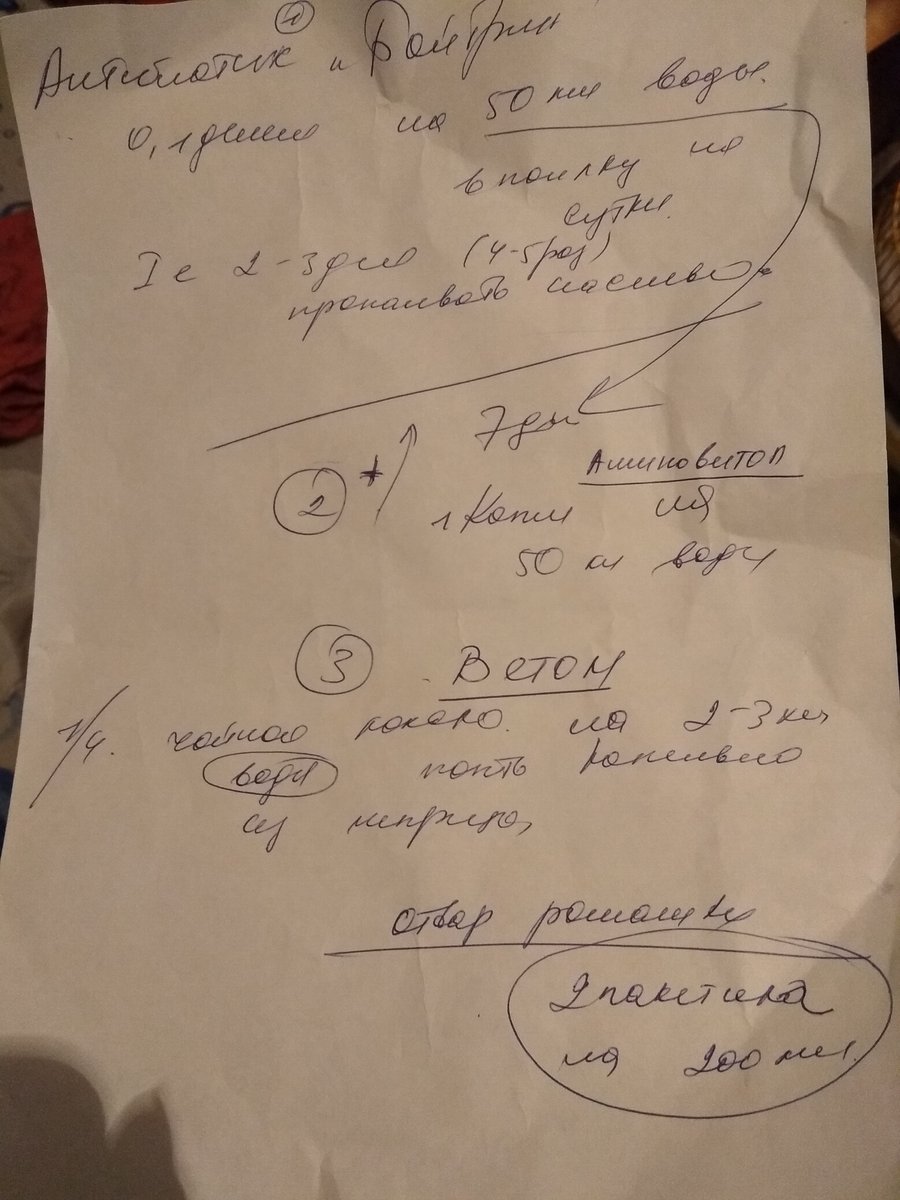 ①
Антибиотик и Байтрил
0,1 на 50 мл воды.
в поилку на
сутки.
I е 2-3 дня (4-5 раз)
пропаивать насильно
7 дн
② +
Аминовитал
1 капля на
50 мл воды
③ Ветом
1/4 чайной ложки на 2-3 мл
воды поить
из шприца,
отвар ромашки
2 пакетика
на 200 мл.